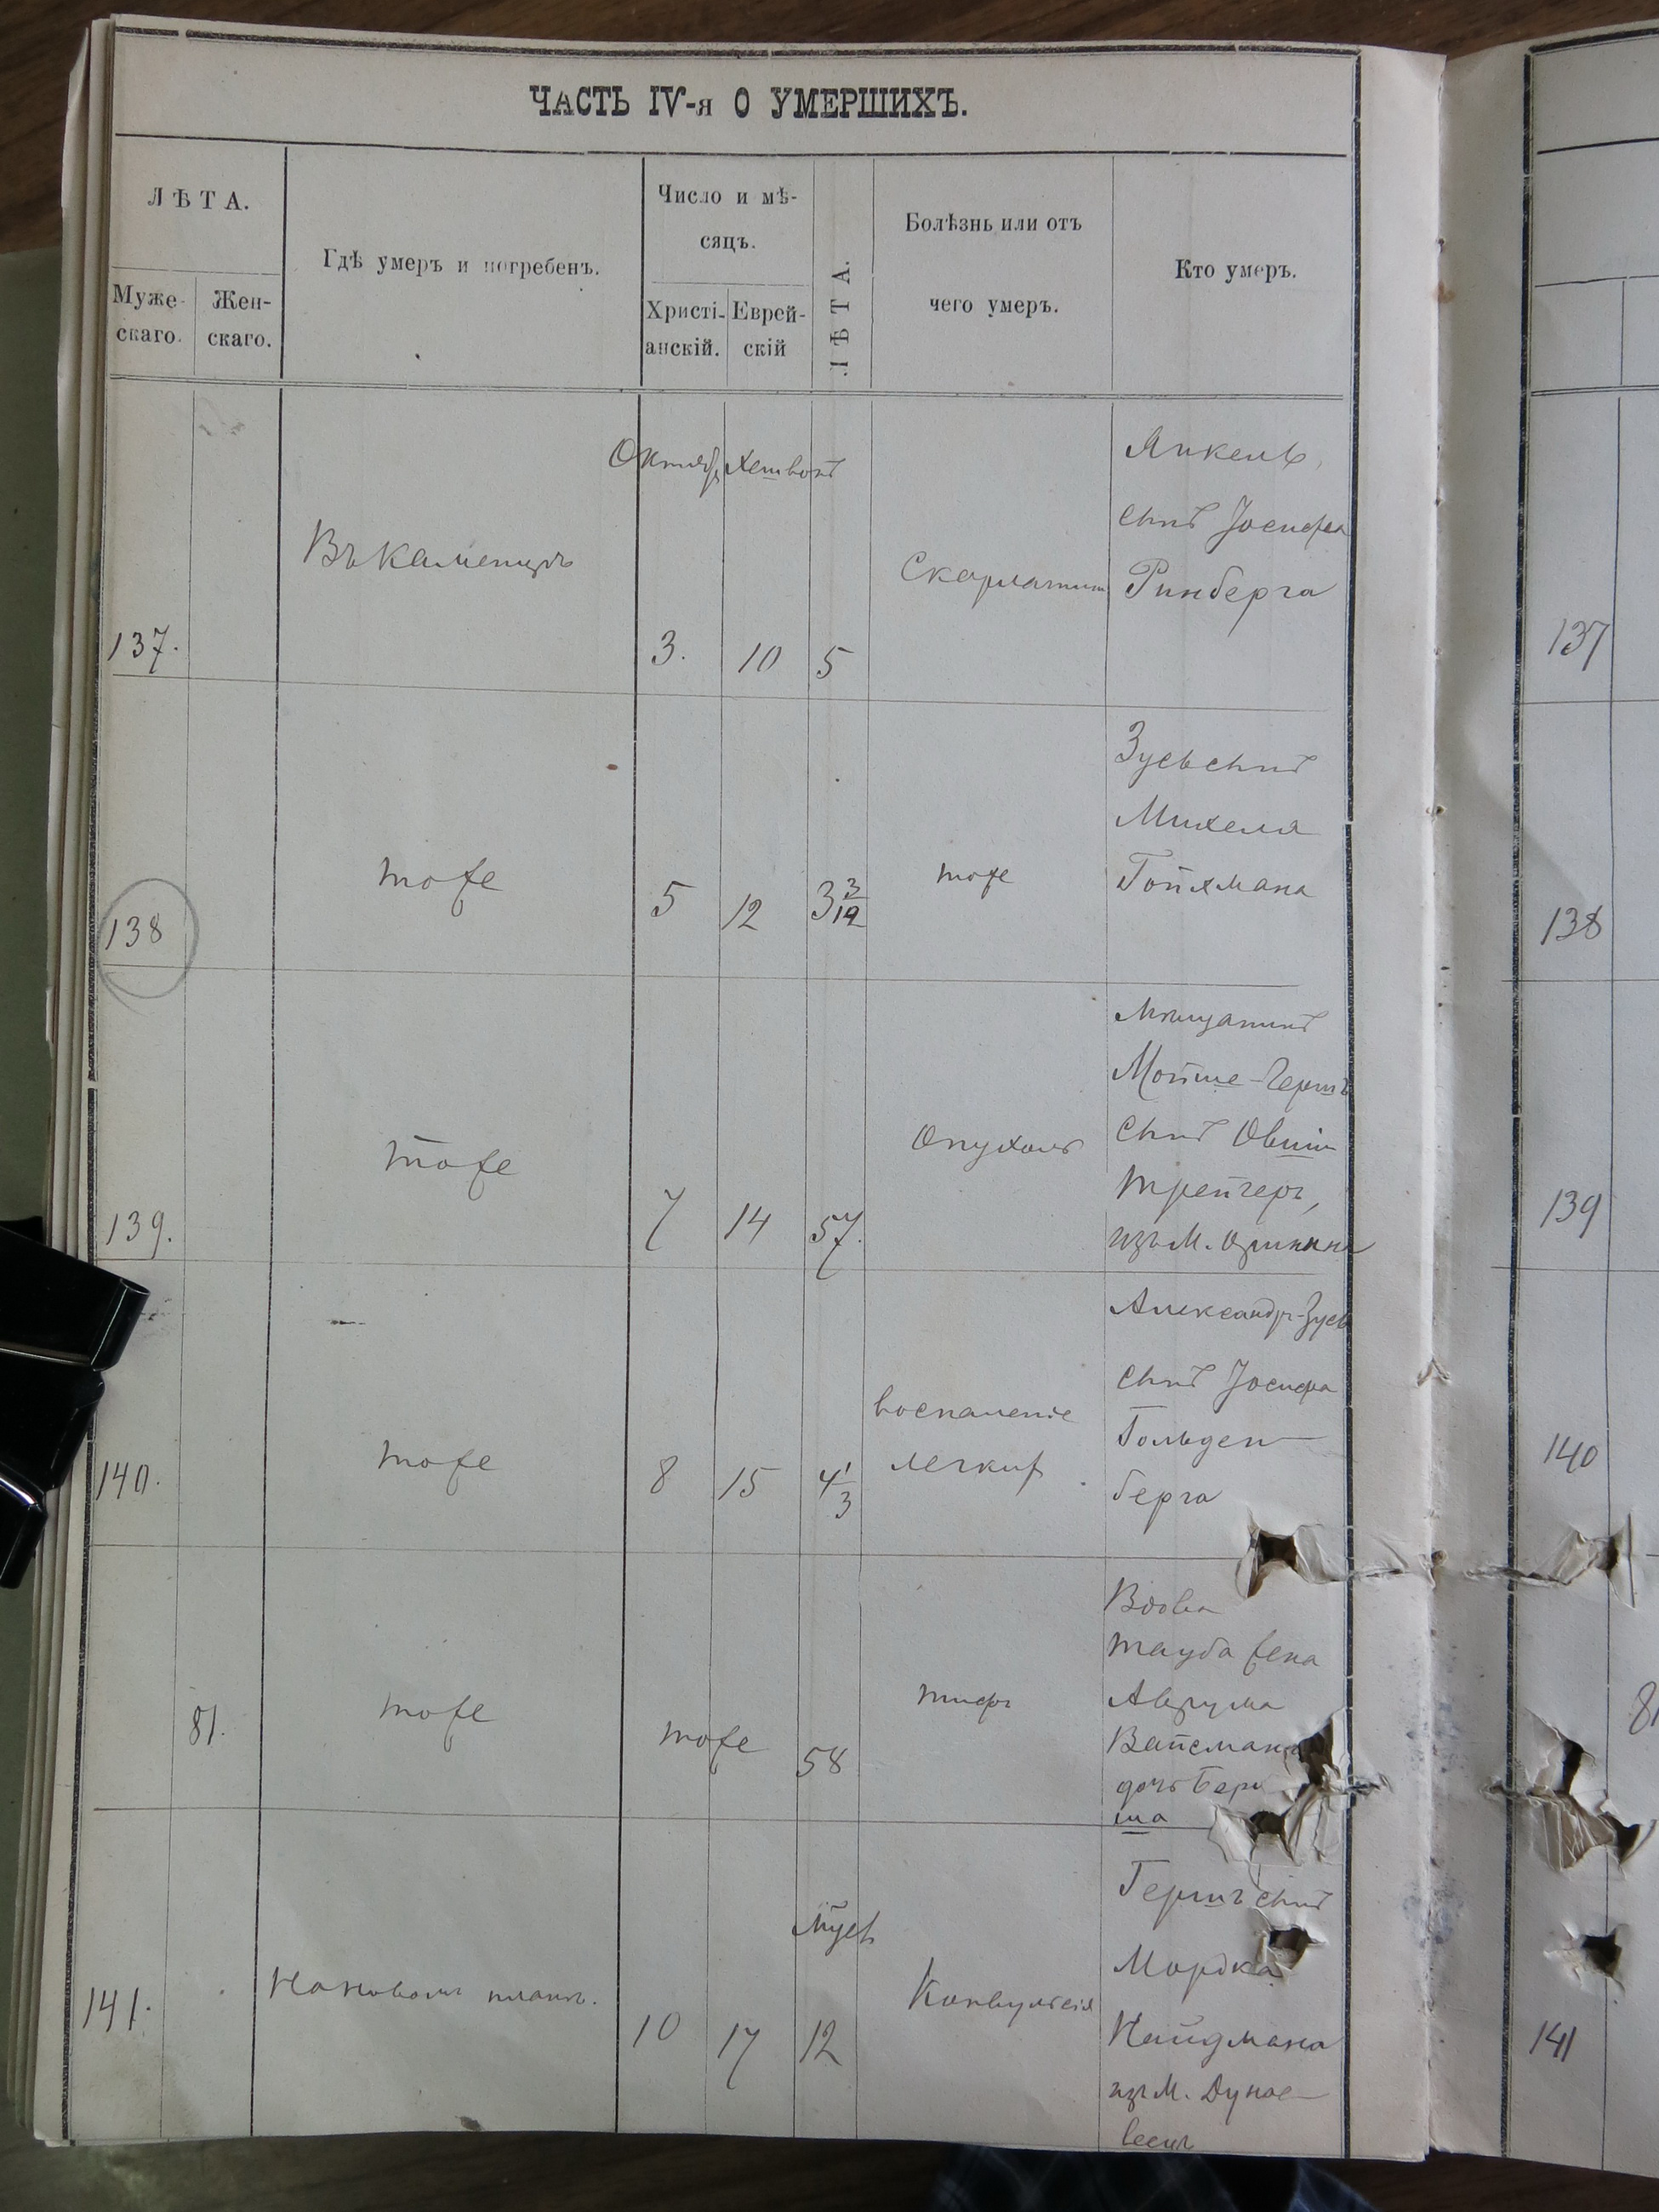 ЧАСТЬ IV-я О УМЕРШИХЪ.
ЛѢТА.
Муже-
скаго.
Жен-
скаго.
Гдѣ умеръ и погребенъ.
Число и мѣ-
сяцъ.
Христі-
анскій.
Еврей-
скій
ЛѢТА.
Болѣзнь или отъ
чего умеръ.
Кто умеръ.
137.
Въ Каменцѣ
Октябр
Хешвонъ
3.
10
5
Скарлатин
Янкель
сынъ Іосифа
Ринберга
137
138
тоже
5
12
3 3/12
тоже
Зусь сынъ
Михеля
Гойхмана
138
139.
тоже
7
14
57.
Опухоль
Мѣщанинъ
Мойше-Гершъ
сынъ Овши
Трейгеръ,
изъ М.
139
140.
тоже
8
15
4 1/3
воспаленіе
легких
Александръ-Зусь
сынъ Іосифа
Гольден-
берга
140
81.
тоже
тоже
58
тифъ
Вдова
Тауба жена
Аврума
Вайсмана
дочь Бери
ша
81
141.
На Новомъ планѣ.
10
17
мѣсѣ
12
Конвульсія
Гершъ сынъ
Мордка
Найдмана
изъ М. Дунае-
вецъ
141